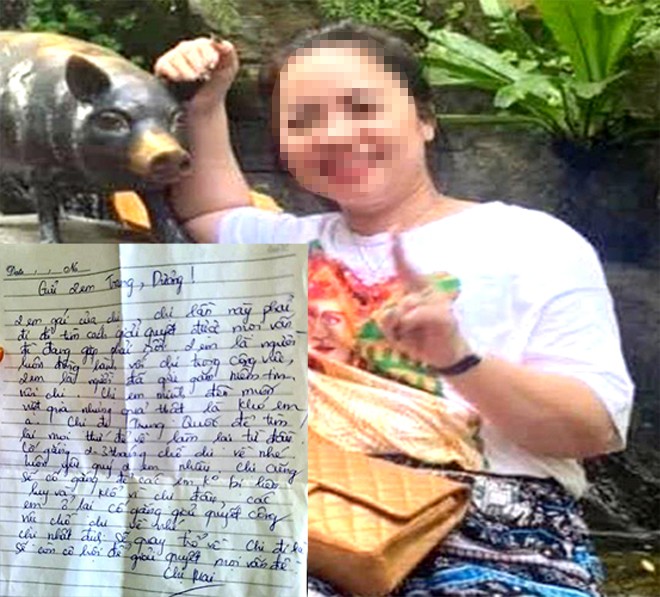 Date , , No
Gửi 2em Trang, Dưỡng!
2em gái của chị, chị lần này phải
đi để tìm cách giải quyết được mọi vấn
đề đang gặp phải rồi. 2em là người
luôn đồng hành với chị trong công việc,
2em là người đã gửi gắm niềm tin
với chị. Chị em mình đều muốn
vượt qua nhưng quả thật là khó em
ạ. Chị đi Trung Quốc để tìm
lại mọi thứ để về làm lại từ đầu!
Cố gắng 2-3 tháng chờ chị về nhé
luôn yêu quý 2em nhiều. Chị cũng
sẽ cố gắng để các em ko bị liên
lụy và khổ vì chị đâu, các
em ở lại cố gắng giải quyết công
việc chờ chị về nhé.
chị nhất định sẽ quay trở về. Chị đi
sẽ còn cơ hội để giải quyết mọi vấn đề
Chị Mai